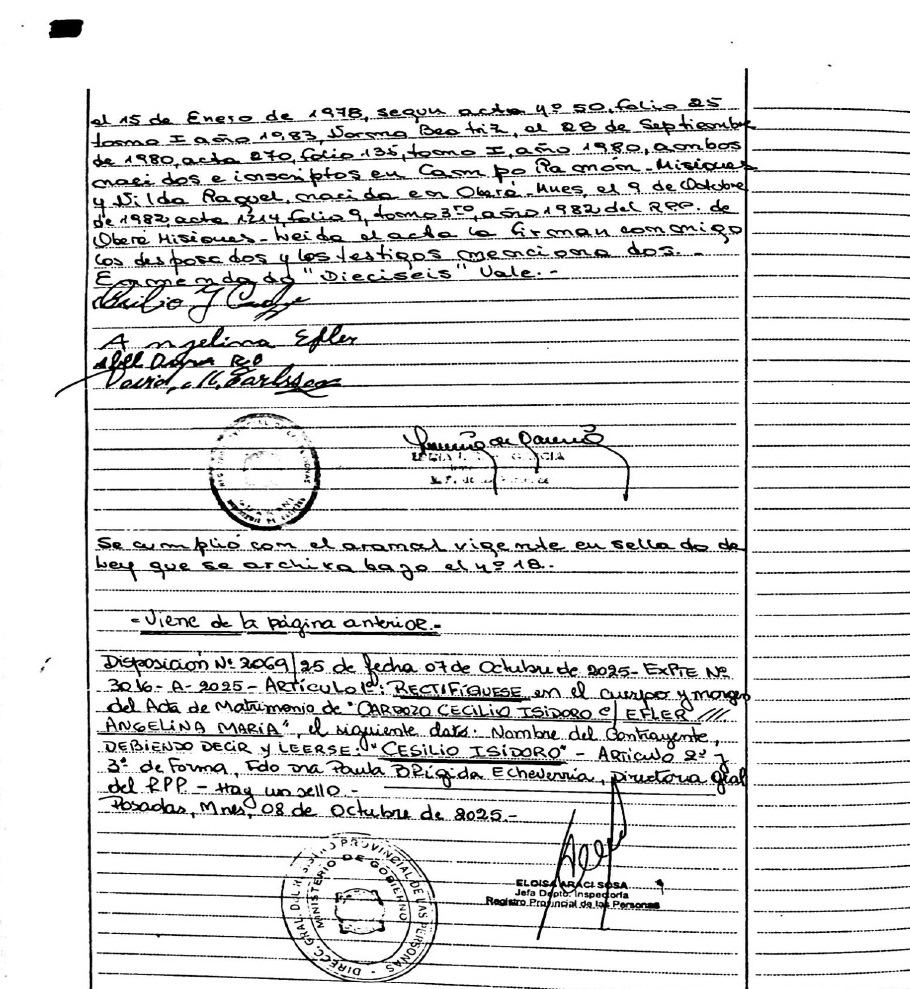 el 15 de Enero de 1978, segun acta nº 50, folio 25
tomo I año 1983, Norma Beatriz, el 28 de Septiembre
de 1980, acta 270, folio 135, tomo I, año 1980, ambos
nacidos e inscriptos en Campo Ramón - Misiones
y Nilda Raquel, nacida en Oberá - Mnes, el 9 de Octubre
de 1982, acta 1214, folio 9, tomo 3ro, año 1982 del RPP. de
Oberá Misiones - Leida el acta la firman conmigo
los desposados y los testigos mencionados. -
Enmendado "Dieciseis" Vale. -
Angelina Efler
Se cumplió con el aramcel vigente en sellado de
Ley que se archiva bajo el nº 18.
- Viene de la página anterior. -
Disposición Nº 2069/25 de fecha 07 de Octubre de 2025 - EXPTE Nº
3016 - A - 2025 - ARTICULO 1º: RECTIFIQUESE en el cuerpo y margen
del Acta de Matrimonio de "CARDOZO CECILIO ISIDORO C/ EFLER ///
ANGELINA MARIA", el siguiente dato: Nombre del Contrayente,
DEBIENDO DECIR y LEERSE: "CESILIO ISIDORO" - ARTICULO 2º y
3º de Forma, Fdo Dra Paula BRIGIDA Echeverria, Directora Gral
del RPP. - Hay un sello. -
Posadas, Mnes, 08 de Octubre de 2025. -
DIRECC. GRAL. DEL REGISTRO PROVINCIAL DE LAS PERSONAS
MINISTERIO DE GOBIERNO
ELOISA ARACI SOSA
Jefa Depto. Inspectoría
Registro Provincial de las Personas